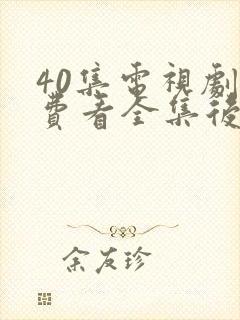 40集電視劇
費看全集後
余友珍